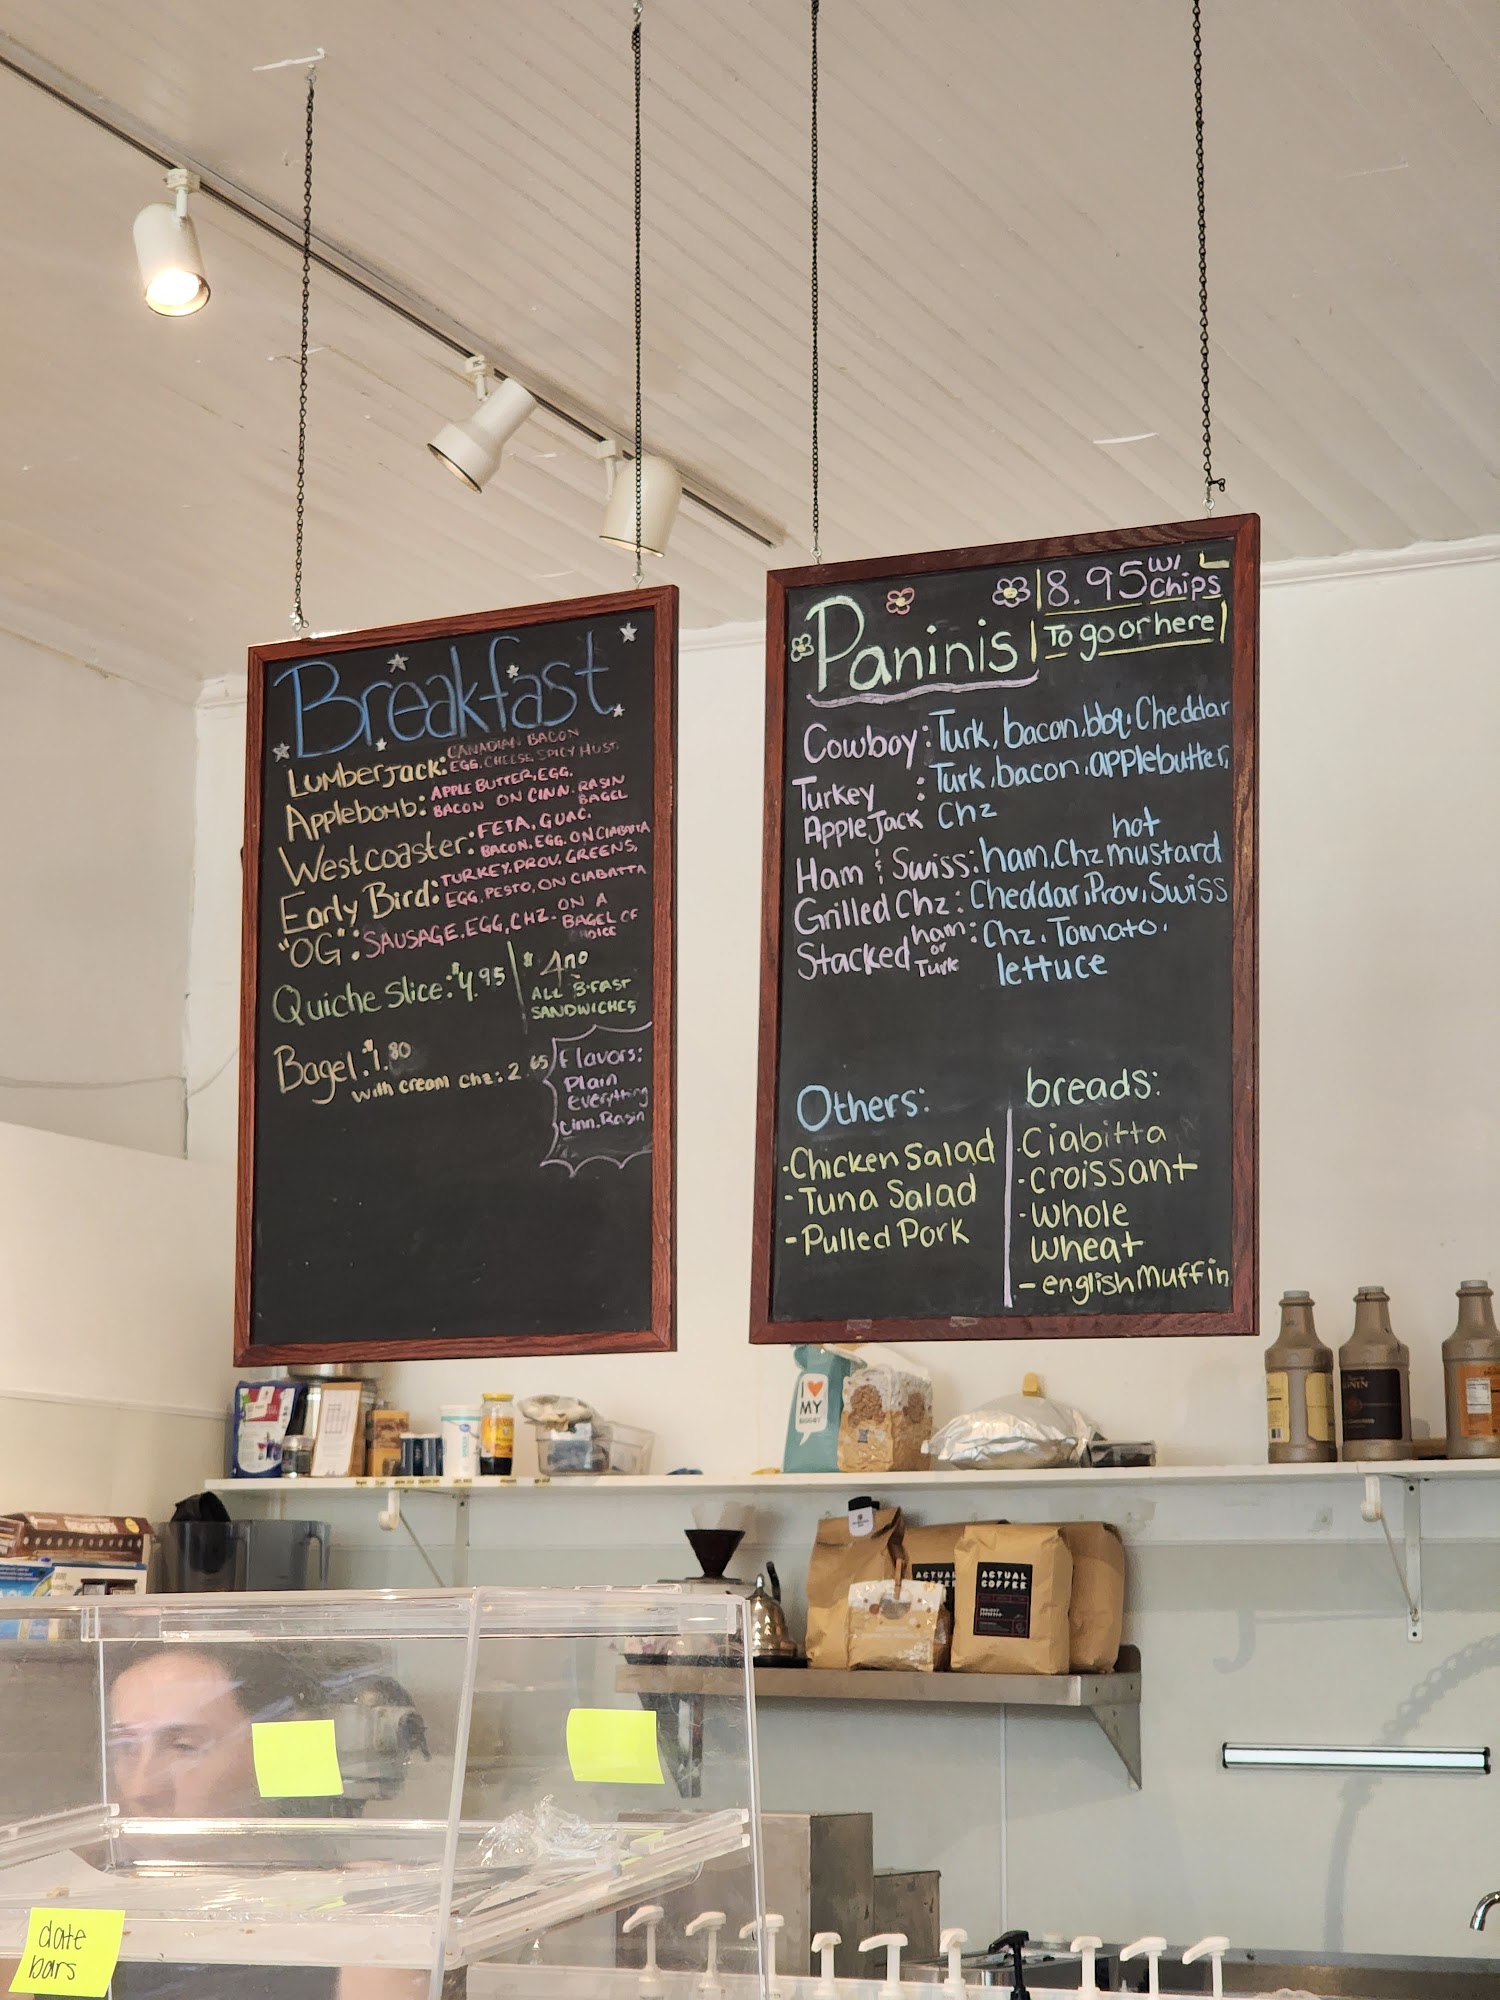 Breakfast
Lumberjack: CANADIAN BACON
EGG, CHEESE, SPICY MUST.
Applebomb: APPLE BUTTER, EGG,
BACON ON CINN. RASIN
BAGEL
Westcoaster: FETA, GUAC,
BACON, EGG, ON CIABATTA
Early Bird: TURKEY, PROV, GREENS,
EGG, PESTO, ON CIABATTA
"OG": SAUSAGE, EGG, CHZ. ON A
BAGEL OF
Quiche Slice: $4.95
ALL B-FAST
SANDWICHES
Bagel: $1.80
with cream chz: 2.65
Flavors:
Plain
Everything
Cinn. Rasin
8.95 w/ Chips
Paninis
To go or here
Cowboy: Turk, bacon, bbq, Cheddar
Turkey
AppleJack : Turk, bacon, applebutter,
Chz
Ham & Swiss: ham, Chz hot
mustard
Grilled Chz: Cheddar, Prov, Swiss
Stacked ham
or
Turk : Chz, Tomato,
lettuce
Others:
-Chicken Salad
-Tuna Salad
-Pulled Pork
breads:
-Ciabitta
-croissant
-whole
wheat
-english Muffin
I ♥
MY
ACTUAL
ACTUAL
COFFEE
date
bars